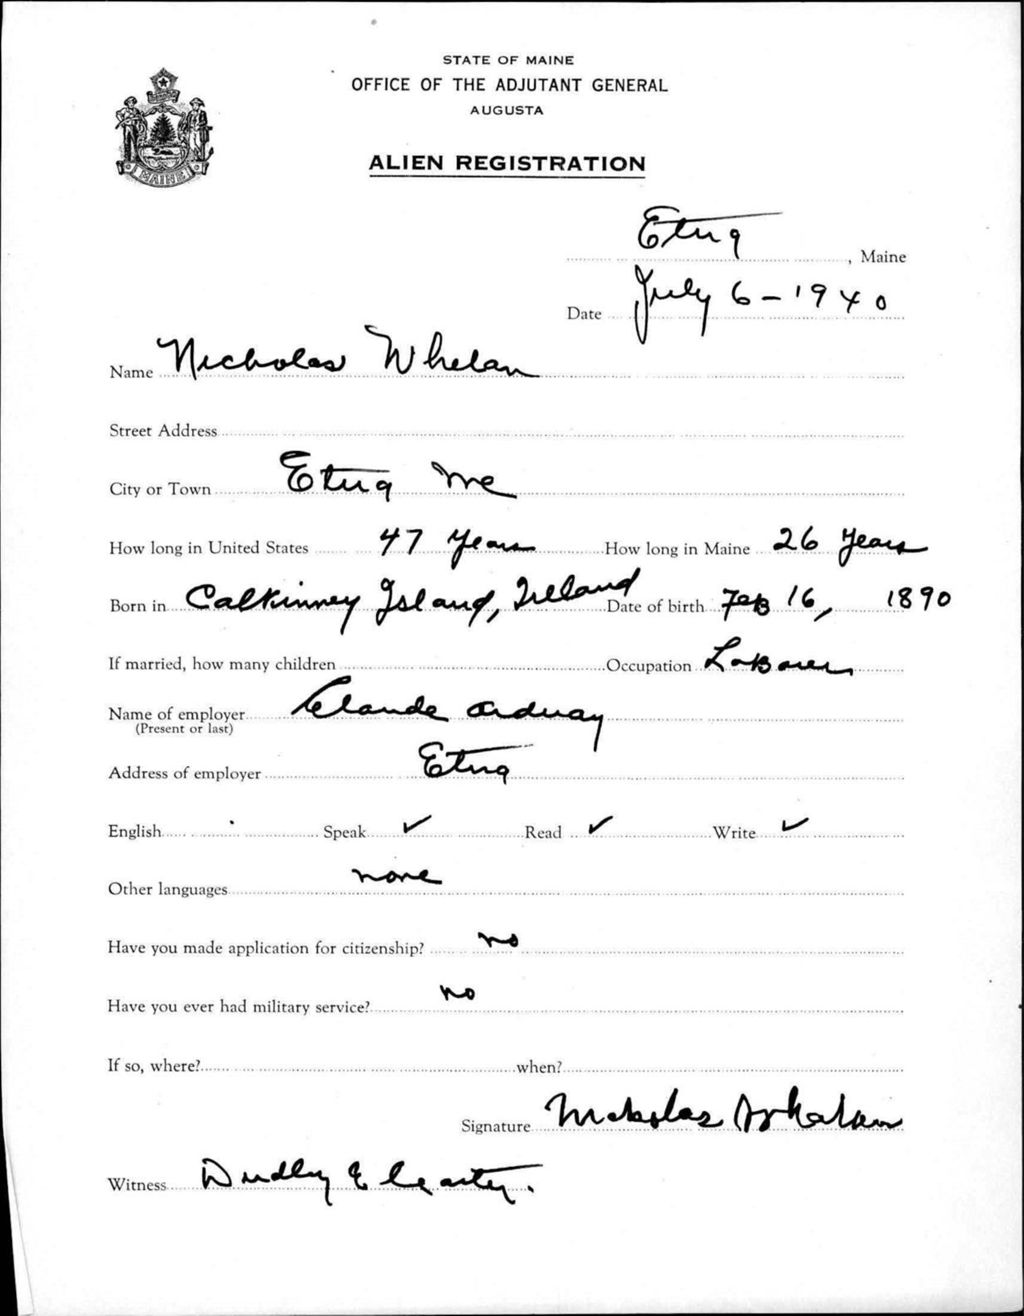 STATE OF MAINE
OFFICE OF THE ADJUTANT GENERAL
AUGUSTA
MAINE
ALIEN REGISTRATION
Etna, Maine
Date July 6-1940
Name Nicholas Whelan
Street Address
City or Town Etna Me
How long in United States 47 years How long in Maine 26 years
Born in Calkinney Island, Ireland Date of birth Feb 16, 1890
If married, how many children Occupation Laborer
Name of employer Claude Ordway
(Present or last)
Address of employer Etna
English Speak ✓ Read ✓ Write ✓
Other languages none
Have you made application for citizenship? no
Have you ever had military service? no
If so, where? when?
Signature Nicholas Whalan
Witness Dudley E